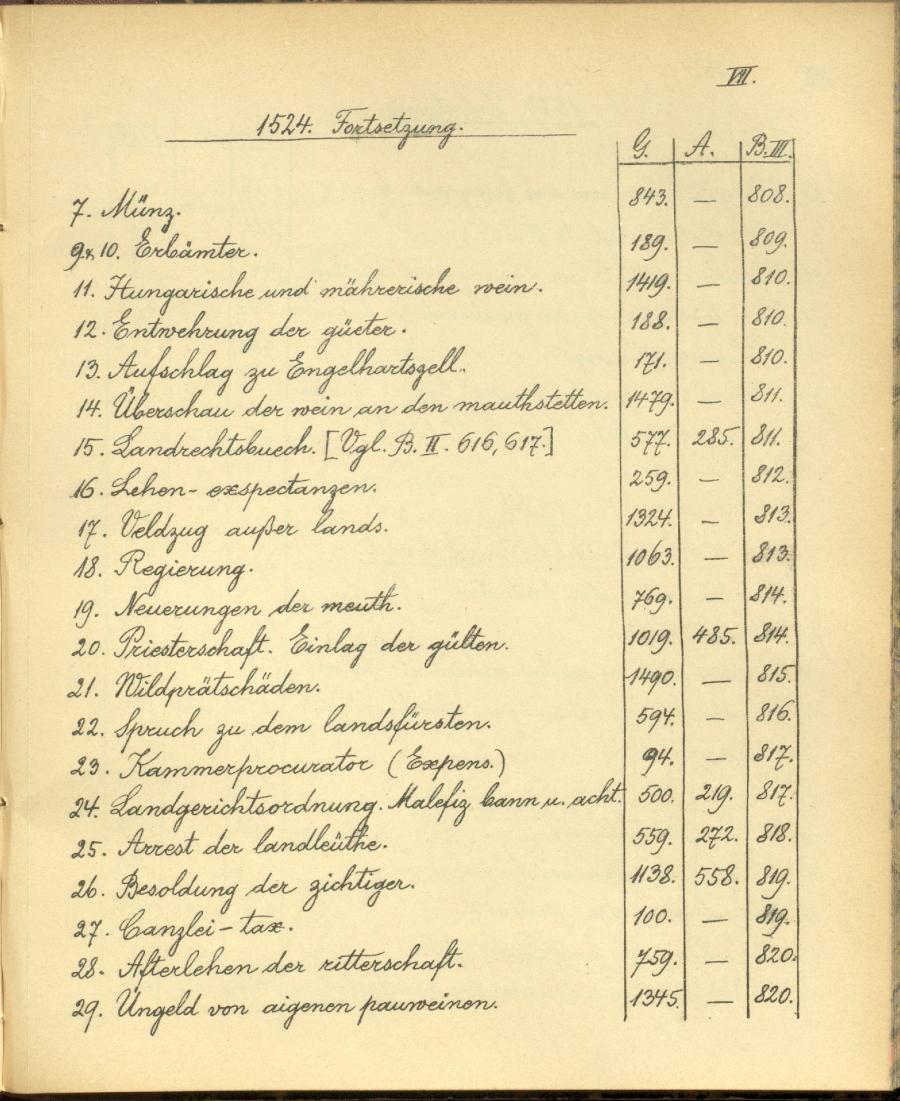 VII.
1524. Fortsetzung.
G. A. B.III.
7. Münz. 843. — 808.
9 & 10. Erbämter. 189. — 809.
11. Hungarische und mährerische wein. 1419. — 810.
12. Entwehrung der güeter. 188. — 810.
13. Aufschlag zu Engelhartszell. 171. — 810.
14. Überschau der wein an den mauthstetten. 1479. — 811.
15. Landrechtsbuech. [Vgl. B. II. 616, 617.] 577. 285. 811.
16. Lehen-exspectanzen. 259. — 812.
17. Veldzug außer lands. 1324. — 813.
18. Regierung. 1063. — 813.
19. Neuerungen der meuth. 769. — 814.
20. Priesterschaft. Einlag der gülten. 1019. 485. 814.
21. Wildprätschäden. 1490. — 815.
22. Spruch zu dem landsfürsten. 594. — 816.
23. Kammerprocurator (Expens.) 94. — 817.
24. Landgerichtsordnung. Malefiz bann u. acht. 500. 219. 817.
25. Arrest der landleüthe. 559. 272. 818.
26. Besoldung der zichtiger. 1138. 558. 819.
27. Canzlei-tax. 100. — 819.
28. Afterlehen der ritterschaft. 759. — 820.
29. Ungeld von aigenen pauweinen. 1345. — 820.